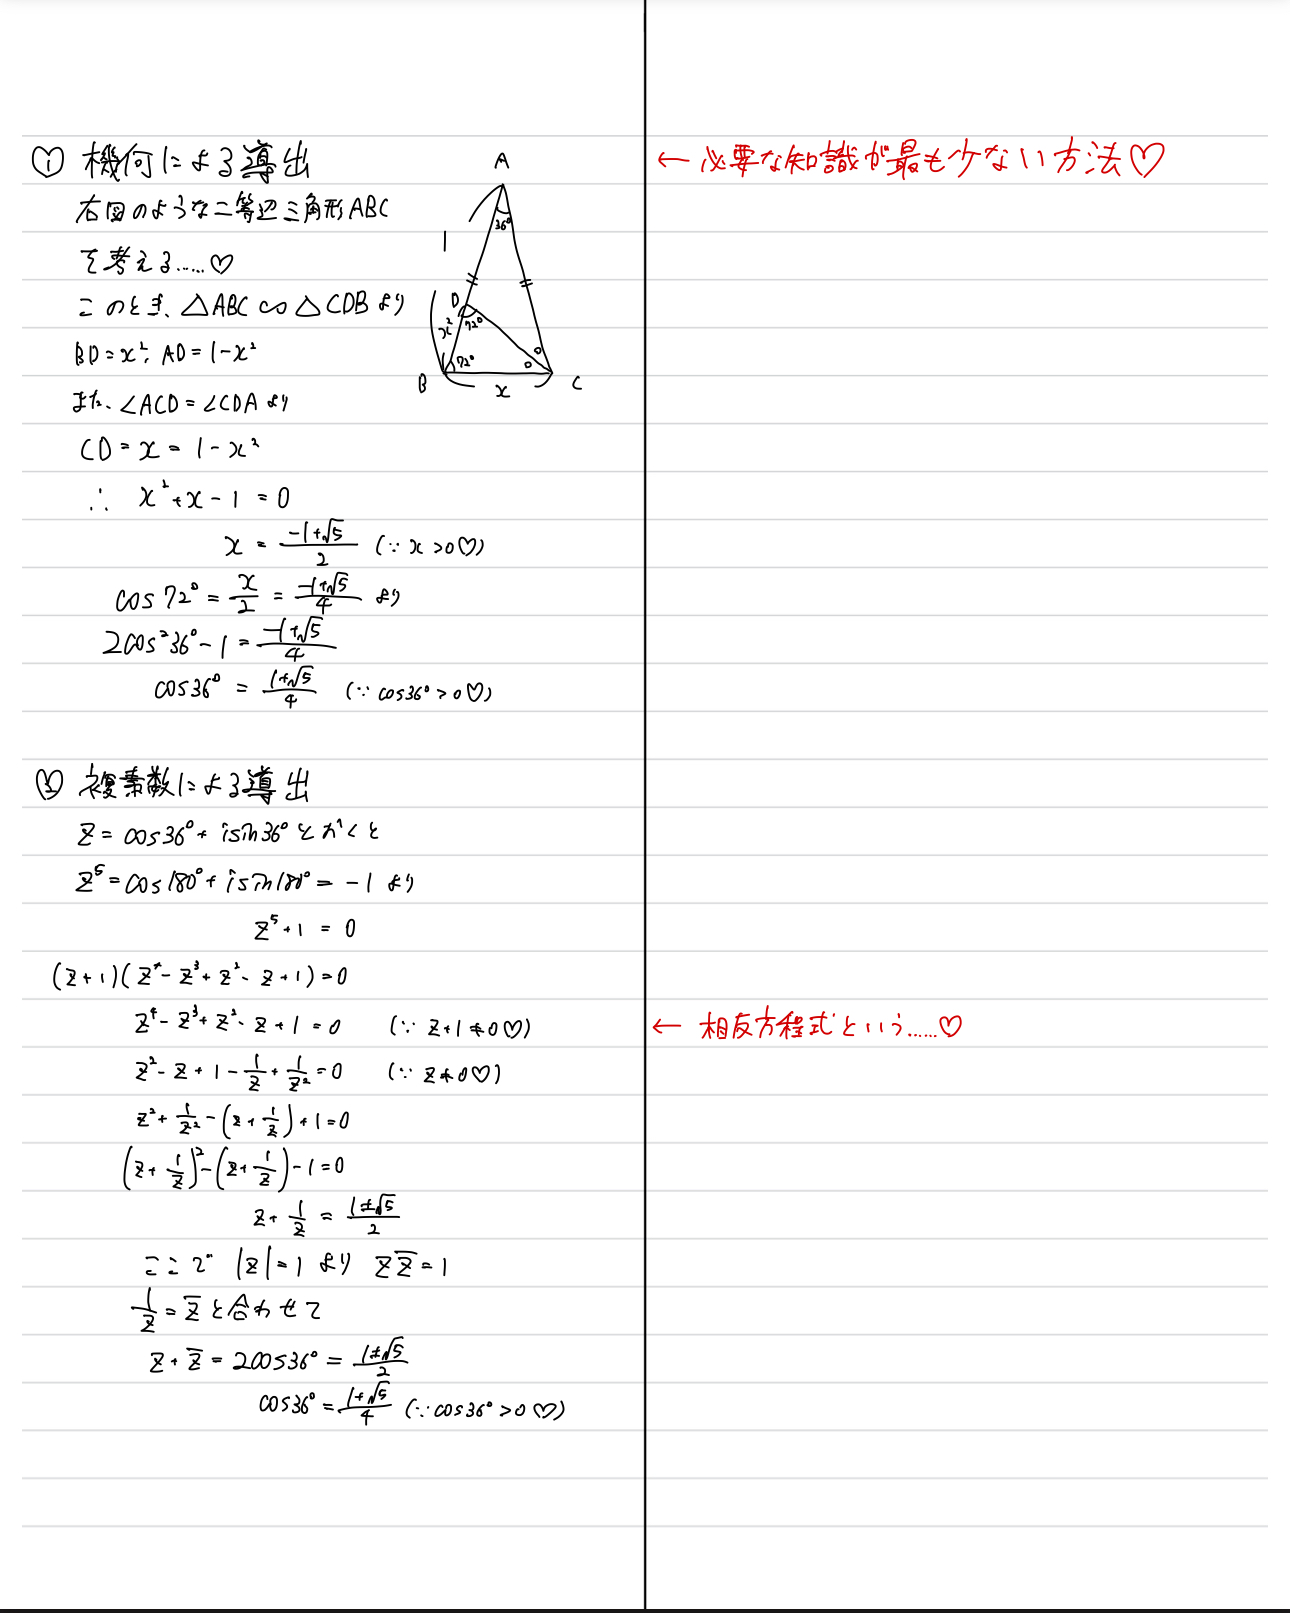 ① 機何による導出
← 必要な知識が最も少ない方法♡
右図のような二等辺三角形ABC
を考える……♡
このとき、△ABC∽△CDBより
BD=x², AD=1-x²
また、∠ACD=∠CDAより
CD=x=1-x²
∴ x²+x-1=0
x=\frac{-1+√5}{2} (∵x>0♡)
cos72°=\frac{x}{2}=\frac{-1+√5}{4}より
2cos²36°-1=\frac{-1+√5}{4}
cos36°=\frac{1+√5}{4} (∵cos36°>0♡)
A
36°
1
D
x²
72°
72°
B
x
C
② 複素数による導出
z=cos36°+isin36°とおくと
z⁵=cos180°+isin180°=-1より
z⁵+1=0
(z+1)(z⁴-z³+z²-z+1)=0
z⁴-z³+z²-z+1=0 (∵z+1≠0♡)
← 相反方程式という……♡
z²-z+1-\frac{1}{z}+\frac{1}{z²}=0 (∵z≠0♡)
z²+\frac{1}{z²}-(z+\frac{1}{z})+1=0
(z+\frac{1}{z})²-(z+\frac{1}{z})-1=0
z+\frac{1}{z}=\frac{1±√5}{2}
ここで |z|=1より zz̄=1
\frac{1}{z}=z̄と合わせて
z+z̄=2cos36°=\frac{1±√5}{2}
cos36°=\frac{1+√5}{4} (∵cos36°>0♡)